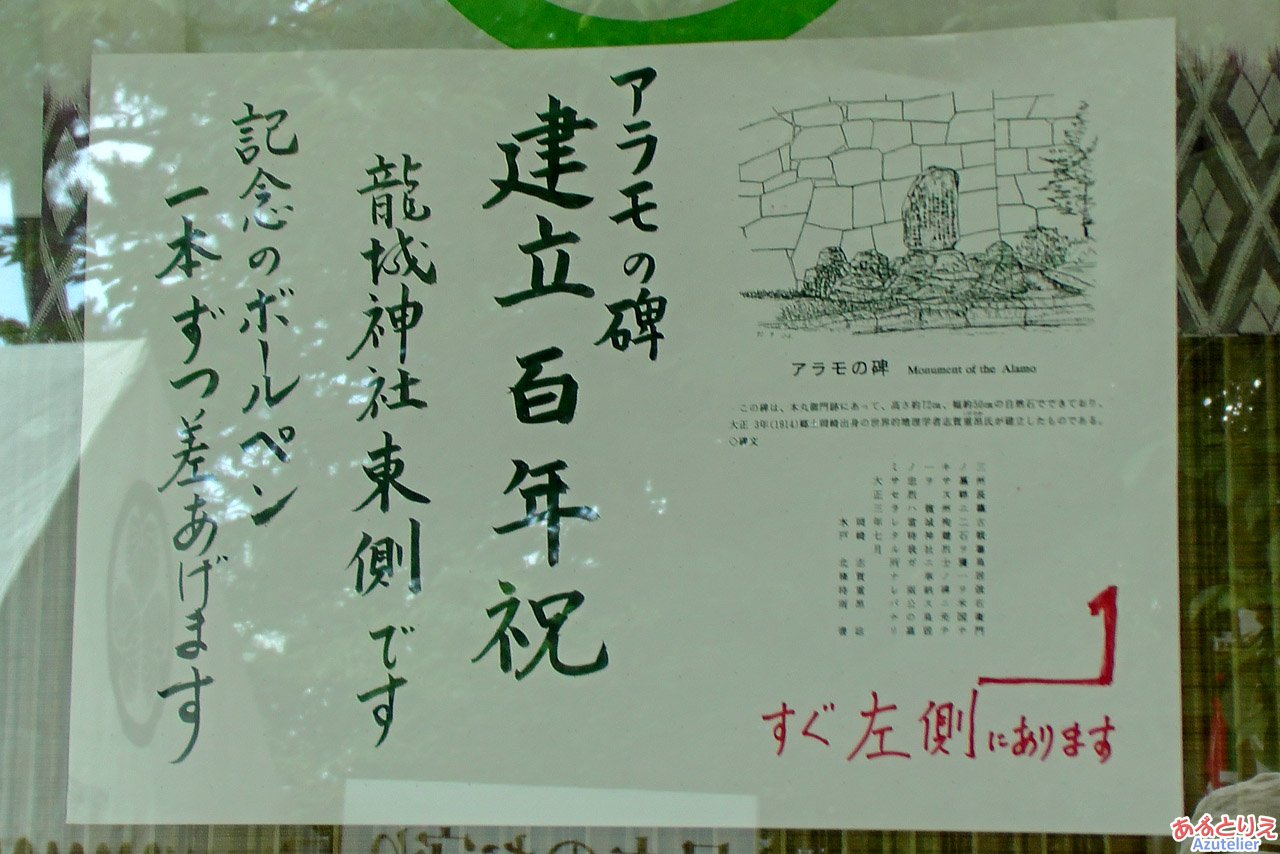 アラモの碑
建立百年祝
龍城神社東側です
記念のボールペン
一本ずつ差あげます
アラモの碑 Monument of the Alamo
この碑は、本丸龍門跡にあって、高さ約72cm、幅約50cmの自然石でできており、
大正 3年(1914)郷土岡崎出身の世界的地理学者志賀重昂氏が建立したものである。
○碑文
大正三年七月
岡崎 志賀重昂 誌
水戸 北條時雨 書
すぐ左側にあります
あるとりえ
Azutelier